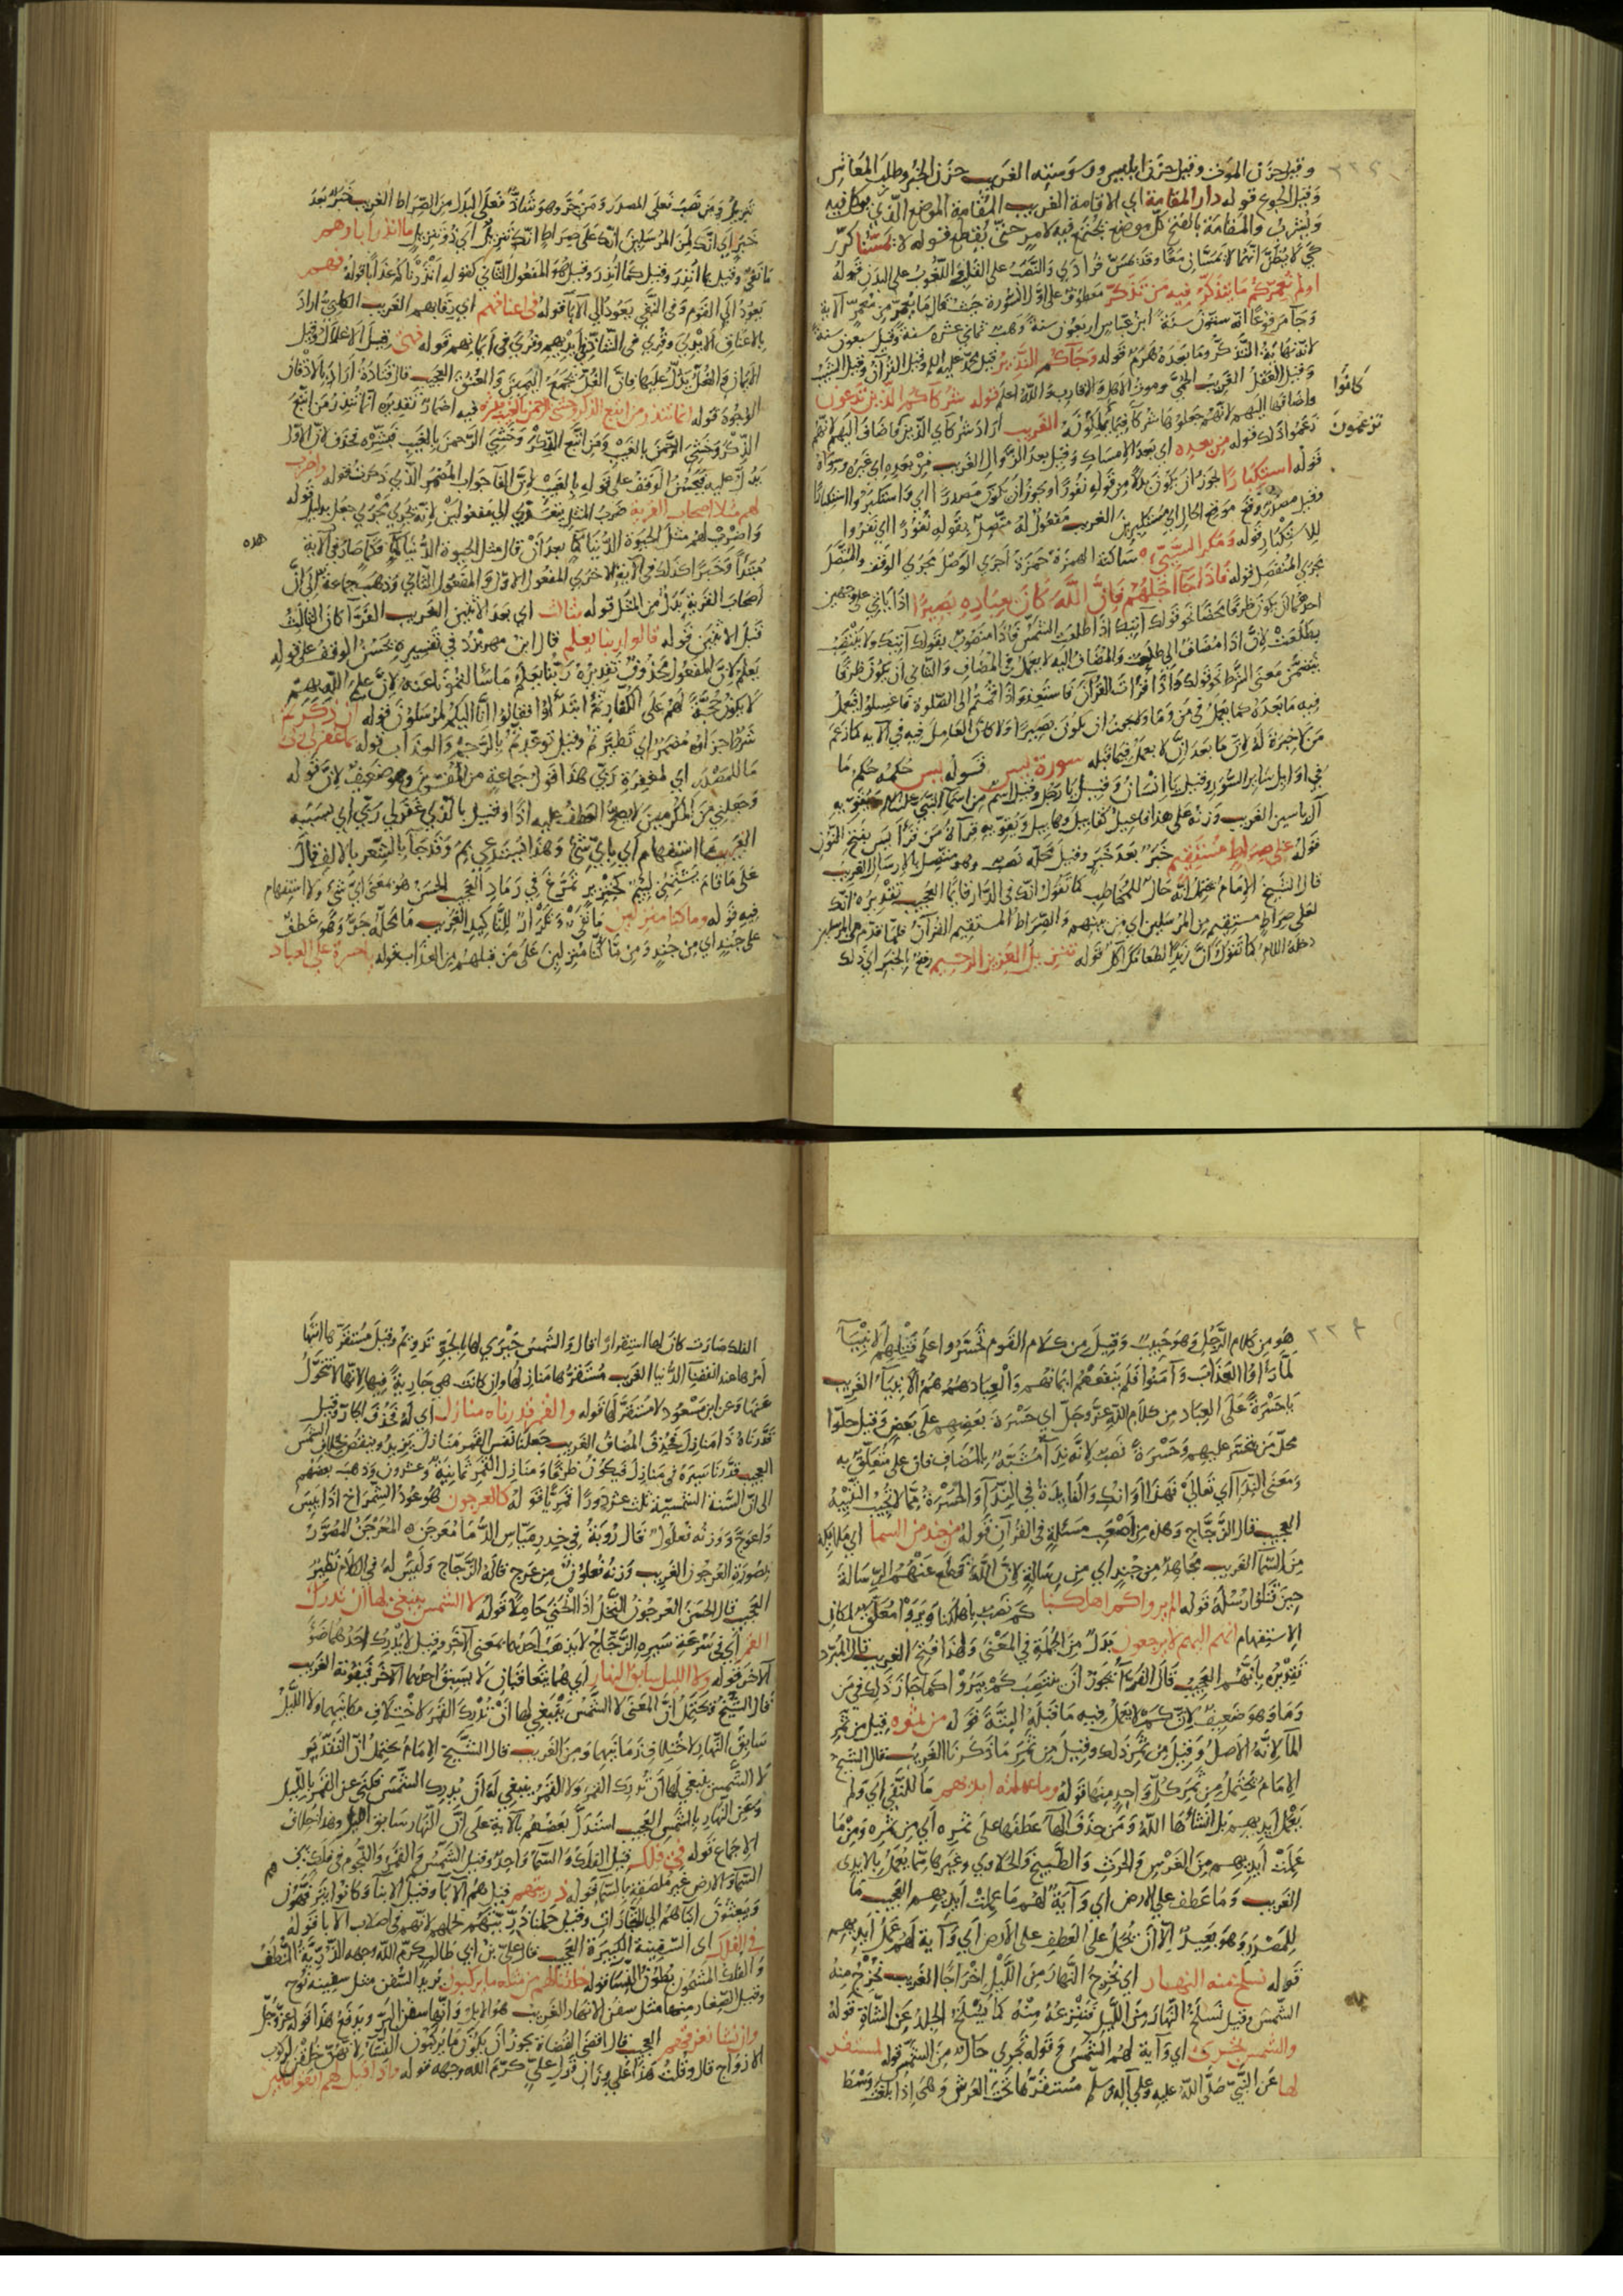 وقيل حزن الموت وقيل حزن ابليس ووسوسته الغريب حزن الخبز وطلب المعاش
وقيل الجوع قوله دار المقامة اي الاقامة الغريب المقامة الموضع الذي يوكل فيه
ويشرب والمقامة بالفتح كل موضع يجتمع فيه لامر حتى يقطع قوله لا يمسنا كرر
اولم نعمركم ما يتذكر فيه من تذكر معطوف على اول السورة
وجاء مرفوعا انه ستون سنة ابن عباس اربعون سنة وهب ثماني عشرة سنة وقيل سبعون سنة
قوله وجاءكم النذير قيل محمد عليه السلام وقيل القرآن وقيل الشيب
قوله شركاءكم الذين تدعون
كانوا
تزعمون
زعموا ذلك قوله من بعده اي بعد الامساك وقيل بعد الزوال الغريب من بعده اي غيره وسواه
قوله استكبارا يجوز ان يكون بدلا من قوله نفورا ويجوز ان يكون مصدرا اي واستكبروا استكبارا
وقيل مصدر وقع موقع الحال اي مستكبرين الغريب مفعول له متصل بقوله نفورا اي نفروا
للاستكبار قوله ومكر السيئ ساكنة الهمزة حمزة اجرى الوصل مجرى الوقف والمتصل
مجرى المنفصل قوله فاذا جاء اجلهم فان الله كان بعباده بصيرا اذا ياتي على وجهين
احدهما ان يكون ظرفا محضا نحو قولك آتيك اذا طلعت الشمس فاذا منصوب بقولك آتيك ولا ينتصب
بطلعت لان اذا مضاف الى طلعت والمضاف اليه لا يعمل في المضاف والثاني ان يكون ظرفا
يتضمن معنى الشرط نحو قولك واذا قرات القرآن فاستعذ واذا قمتم الى الصلوة فاغسلوا فيعمل
فيه ما بعده كما يعمل في من وما
من لا خبرة له لان ما بعد ان لا يعمل فيما قبله سورة يس قوله يس حكمه حكم ما
في اوايل ساير السور وقيل يا انسان وقيل يا رجل وقيل اسم من اسماء النبي عليه السلام
آل ياسين الغريب وزنه على هذا فاعيل كقابيل وهابيل ويقويه قراءة من قرأ يس بفتح النون
قوله على صراط مستقيم خبر بعد خبر وقيل محله نصب وهو متصل بالارسال الغريب
قال الشيخ الامام يحتمل انه حال للمخاطب كما تقول انك في الدار قائما العجيب تقديره انك
لعلى صراط مستقيم من المرسلين اي من بينهم والصراط المستقيم القرآن
قوله تنزيل العزيز الرحيم رفع بالخبر اي ذلك
تنزيل ومن نصب فعلى المصدر ومن جر وهو شاذ فعلى البدل من الصراط الغريب خبر بعد
خبر اي انك لمن المرسلين انك على صراط انك تنزيل اي ذو تنزيل ما انذر آباؤهم
ما نفي وقيل بما انذر وقيل كما انذر وقيل هو المفعول الثاني كقوله انذرناكم عذابا قوله فهم
يعود الى القوم وفي النفي يعود الى الآباء قوله في اعناقهم اي رقابهم الغريب الكلبي اراد
بالاعناق الايدي وقرئ في الشاذ في ايديهم وقرئ في ايمانهم قوله فهي قيل الاغلال وقيل
الايمان والغل يدل عليها فان الغل يجمع اليمين والعنق العجيب قال قتادة اراد بالاذقان
الوجوه قوله انما تنذر من اتبع الذكر وخشي الرحمن بالغيب فبشره فيه اضمار تقديره انما تنذر من اتبع
الذكر وخشي الرحمن بالغيب ومن اتبع الذكر وخشي الرحمن بالغيب فبشره فحذف لان الاول
يدل عليه فيحسن الوقف على قوله بالغيب لان الفاء جواب المضمر الذي ذكرت قوله واضرب
لهم مثلا اصحاب القرية ضرب المثل يتعدى الى مفعولين لانه يجري مجرى جعل بدليل قوله
واضرب لهم مثل الحيوة الدنيا كماء بعد ان قال مثل الحيوة الدنيا كماء فكما صار في الآية
هذه
مبتدأ وخبرا كذلك في الآية الاخرى المفعول الاول والمفعول الثاني وذهب جماعة الى ان
اصحاب القرية بدل من المثل قوله بثالث اي بعد الاثنين الغريب الفراء كان الثالث
قبل الاثنين قوله قالوا ربنا يعلم قال ابن مهريزد في تفسيره يحسن الوقف على قوله
يعلم لان المفعول محذوف تقديره ربنا يعلم ما سألتموناعنه لان علم الله بهم
لا يكون حجة لهم على الكفار ثم ابتدأوا فقالوا انا اليكم لمرسلون قوله ائن ذكرتم
شرط جزاؤه مضمر اي تطيرتم وقيل توعدتم بالرجم والعذاب قوله بما غفر لي ربي
ما للمصدر اي لمغفرة ربي هذا قول جماعة من المفسرين وهو ضعيف لان قوله
وجعلني من المكرمين لا يصح العطف عليه اذا وقيل بالذي غفر لي ربي اي بسببه
الغريب ما استفهام اي باي شيء وهذا يستدعي بم وقد جاء بالشعر بالالف قال
على ما قام يشتمني لئيم كخنزير تمرغ في رماد العجيب الحسن هو بمعنى اي شيء ولا استفهام
فيه قوله وما كنا منزلين ما نفي وتكرار للتاكيد الغريب ما محله جر وهو عطف
على جند اي من جند ومن ما كنا منزلين على من قبلهم من العذاب قوله يا حسرة على العباد
هو من كلام الرجل وهو حبيب وقيل من كلام القوم تحسروا على قتلهم الانبياء
لما رأوا العذاب وآمنوا فلم ينفعهم ايمانهم والعباد هم الانبياء الغريب
يا حسرة على العباد من كلام الله عز وجل اي حسرة بعضهم على بعض وقيل حلوا
محل من يتحسر عليهم وحسرة نصب لانه نداء مشبه بالمضاف فان على متعلق به
ومعنى النداء اي تعالي فهذا اوانك والفايدة في النداء والحسرة مما لا يجيب التنبيه
العجيب قال الزجاج وهذه من اصعب مسئلة في القرآن قوله من جند من السماء اي ملايكة
من السماء الغريب مجاهد من جند اي من رسالة لان الله قطع عنهم الرسالة
حين قتلوا رسله قوله الم يروا كم اهلكنا كم نصب باهلكنا ويروا معلق لمكان
الاستفهام انهم اليهم لا يرجعون بدل من الجملة في المعنى ولهذا فتح الغريب قال المبرد
تقديره بانهم العجيب قال الفراء يجوز ان ينتصب كم بيروا كما جاز ذلك في من
وما وهو ضعيف لان كم لا يعمل فيه ما قبله البتة قوله من ثمره قيل من ثمر
الماء لانه الاصل وقيل من ثمر ذلك وقيل من ثمر ما ذكرنا الغريب قال الشيخ
الامام يحتمل من ثمر كل واحد منها قوله وما عملته ايديهم ما للنفي اي ولم
يعمل ايديهم بل انشأها الله ومن حذف الهاء عطفها على ثمره اي من ثمره ومن ما
عملت ايديهم من الغرس والحرث والطبيخ والحلاوى وغيرها مما يعمل بالايدى
الغريب وما عطف على الارض اي وآية لهم ما عملت ايديهم العجيب ما
للمصدر وهو بعيد الا ان يحمل على العطف على الارض اي وآية لهم عمل ايديهم
قوله نسلخ منه النهار اي نخرج النهار من الليل اخراجا الغريب نخرج منه
الشمس وقيل نسلخ النهار من الليل فننزعه منه كما يسلخ الجلد عن الشاة قوله
والشمس تجري اي وآية لهم الشمس وقوله تجري حال من الشمس قوله لمستقر
لها عن النبي صلى الله عليه وعلى آله وسلم مستقرها تحت العرش وهي اذا بلغت وسط
الفلك صارت كان لها استقرارا قال والشمس تجري لها بالجو تدويم وقيل مستقرها انتهاء
امرها عند انقضاء الدنيا الغريب مستقرها منازلها وان كانت هي جارية فيها لانها لا تتحول
عنها وعن ابن مسعود لا مستقر لها قوله والقمر قدرناه منازل اي له فحذف الجار وقيل
قدرناه ذا منازل فحذف المضاف الغريب جعلنا نفس القمر منازل يزيد وينقص بخلاف الشمس
العجيب قدرنا سيره في منازل فيكون ظرفا ومنازل القمر ثمانية وعشرون وذهب بعضهم
الى ان السنة الشمسية ثلث عشر دورا قمريا قوله كالعرجون هو عود الشمراخ اذا يبس
واعوج ووزنه فعلول قال رؤبة في خدر مياس الدمى معرجن المعرجن المصور
بصورة العرجون الغريب وزنه فعلون من عرج قاله الزجاج وليس له في الكلام نظير
العجيب قال الحسن العرجون النخل اذا انحنى حاملا قوله لا الشمس ينبغي لها ان تدرك
القمر اي في سرعة سيره الزجاج لا يذهب احدهما بمعنى الآخر وقيل لا يدرك احدهما ضوء
الآخر قوله ولا الليل سابق النهار اي هما يتعاقبان لا يسبق احدهما الآخر فيفوته الغريب
قال الشيخ فيحتمل ان المعنى لا الشمس ينبغي لها ان تدرك القمر لاختلاف مكانيهما ولا الليل
سابق النهار لاختلاف زمانيهما ومن الغريب قال الشيخ الامام يحتمل ان التقدير
لا الشمس ينبغي لها ان تدرك القمر ولا القمر ينبغي له ان يدرك الشمس فكنى عن القمر بالليل
وعن النهار بالشمس العجيب استدل بعضهم بالآية على ان النهار سابق الليل وهذا خلاف
الاجماع قوله في فلك قيل الفلك والسماء واحد وقيل الشمس والقمر والنجوم في فلك بين
السماء والارض غير ملصقة بالسماء قوله ذريتهم قيل هم الآباء وقيل الابناء وكانوا
هم
ويبعثون ابناءهم الى التجارات وقيل حملنا ذريتهم لانهم في اصلاب الآباء قوله
في الفلك اي السفينة الكبيرة العجيب قال علي بن ابي طالب كرم الله وجهه الذرية النطف
والفلك المشحون بطون النساء قوله وخلقنا لهم من مثله ما يركبون يريد السفن مثل سفينة نوح
وقيل الصغار منها مثل سفن الانهار الغريب هو الابل وانها سفن البر ويدفع هذا قوله عز وجل
وان نشا نغرقهم العجيب قال اقضى القضاة يجوز ان يكون ما يركبون النساء لانهن خلقن لركوب
الازواج قال وقلت هذا على وزان قول علي كرم الله وجهه قوله واذا قيل لهم اتقوا ما بين